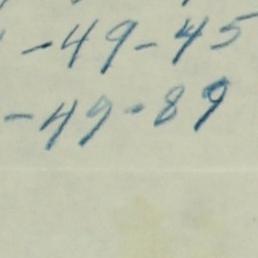 -49-45
-49-89